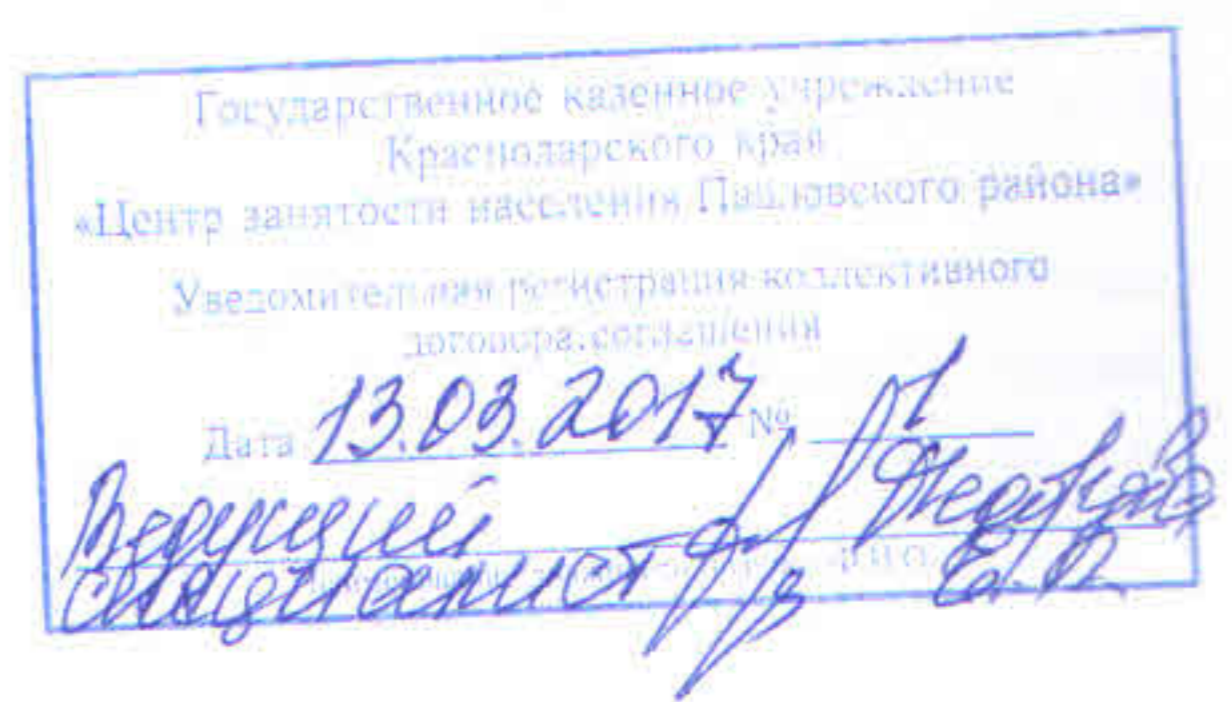 Государственное казенное учреждение
Краснодарского края
«Центр занятости населения Павловского района»
Уведомительная регистрация коллективного
договора, соглашения
Дата 13.03.2017 №
Ведущий
специалист